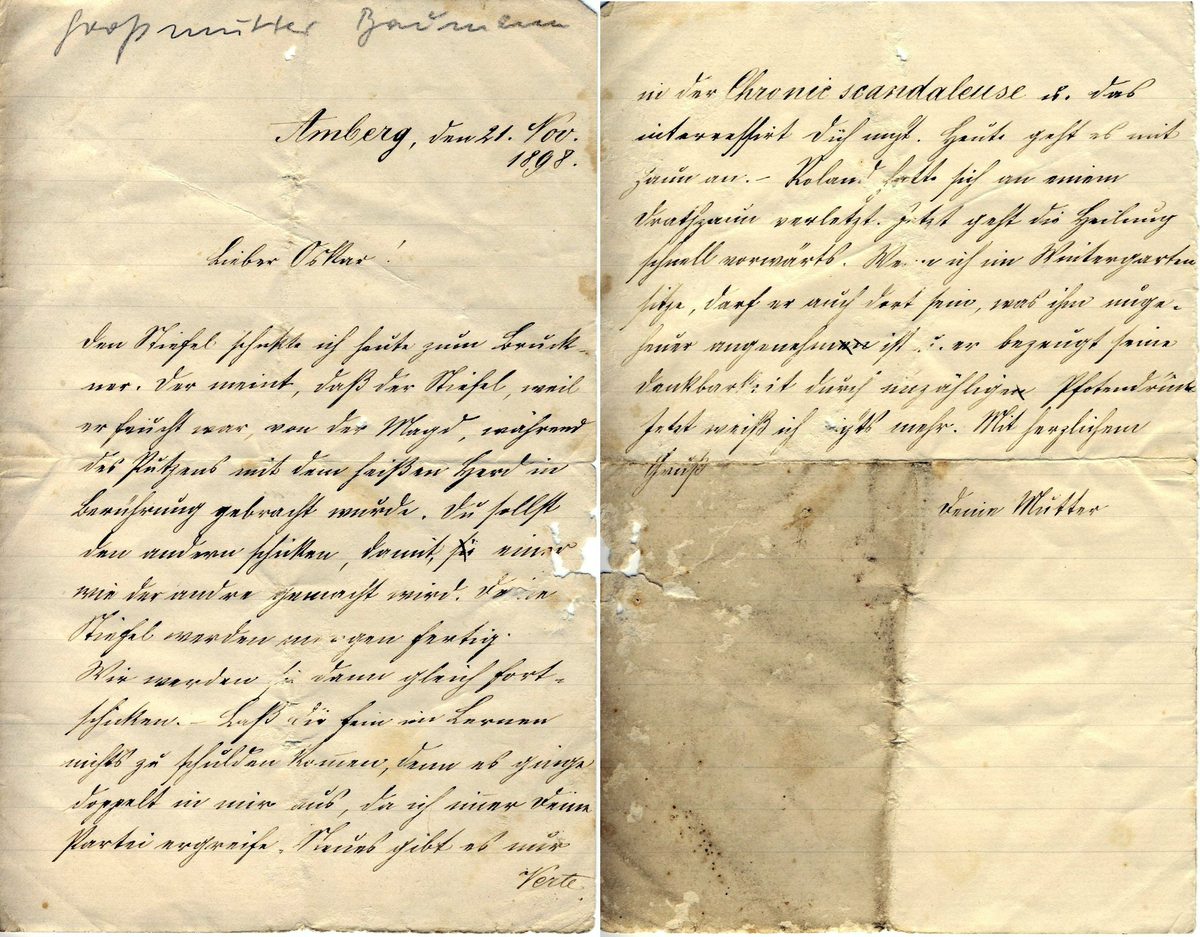 Großmutter Baumann
Amberg, den 21. Nov.
1898.
Lieber Oskar!
Den Stiefel schickte ich heute zum Bruck-
ner. Der meint, daß der Stiefel, weil
er feucht war, von der Magd, während
des Putzens mit dem heißen Herd in
Berührung gebracht wurde. Du sollst
den andern schicken, damit einer
wie der andre gemacht wird. Deine
Stiefel werden morgen fertig.
Wir werden sie dann gleich fort-
schicken. – Laß Dir fein im Lernen
nichts zu schulden kom̅en, denn es ginge
doppelt in mir aus, da ich im̅er Deine
Partei ergreife. Neues gibt es nur
Verte
in der Chronic scandaleuse u. das
interressirt Dich nicht. Heute geht es mit
Zaun an. – Roland hatte sich an einem
Drathzaun verletzt. Jetzt geht die Heilung
schnell vorwärts. Wenn ich im Wintergarten
sitze, darf er auch dort sein, was ihm unge-
heuer angenehm ist u. er bezeugt seine
Dankbarkeit durch unzählige Pfotendrücke
Jetzt weiß ich nichts mehr. Mit herzlichem
Gruß
Deine Mutter